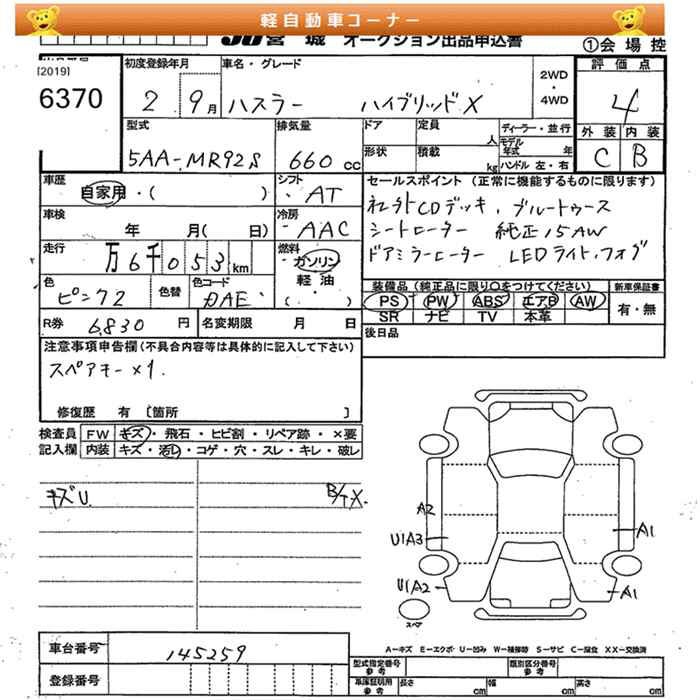 軽自動車コーナー
JU宮城 オークション出品申込書
①会場控
[2019]
6370
初度登録年月
2 9月
車名・グレード
ハスラー ハイブリッドX
2WD・4WD
評価点
4
外装 内装
C B
型式
5AA-MR92S
排気量
660cc
ドア 定員 人
形状 積載 kg
ディーラー・並行
モデル年式 年
ハンドル 左・右
車歴
自家用・( )
シフト
AT
セールスポイント (正常に機能するものに限ります)
CDデッキ、ブルートゥース
シートヒーター 純正15AW
ドアミラーヒーター LEDライト、フォグ
車検
年 月( 日)
冷房
AAC
走行
万6千053km
燃料
ガソリン
軽油
・( )
色
ピンク2
色替
色コード
DAE
装備品 (純正品に限り○をつけてください)
PS PW ABS エアB AW
SR ナビ TV 本革
新車保証書
有・無
R券 6,830円
名変期限 月 日
後日品
注意事項申告欄 (不具合内容等は具体的に記入して下さい)
スペアキー×1.
修復歴 有 〔箇所 〕
検査員記入欄
FW キズ・飛石・ヒビ割・リペア跡・×要
内装 キズ・汚レ・コゲ・穴・スレ・キレ・破レ
キズU. B/TX.
A2
U1A3
U1A2
A1
A1
スペア
A-キズ E-エクボ U-凹み W-補修跡 S-サビ C-腐食 XX-交換済
車台番号 145259
登録番号
型式指定番号 参考
類別区分番号 参考
車庫証明用 参考
長さ cm 幅 cm 高さ cm